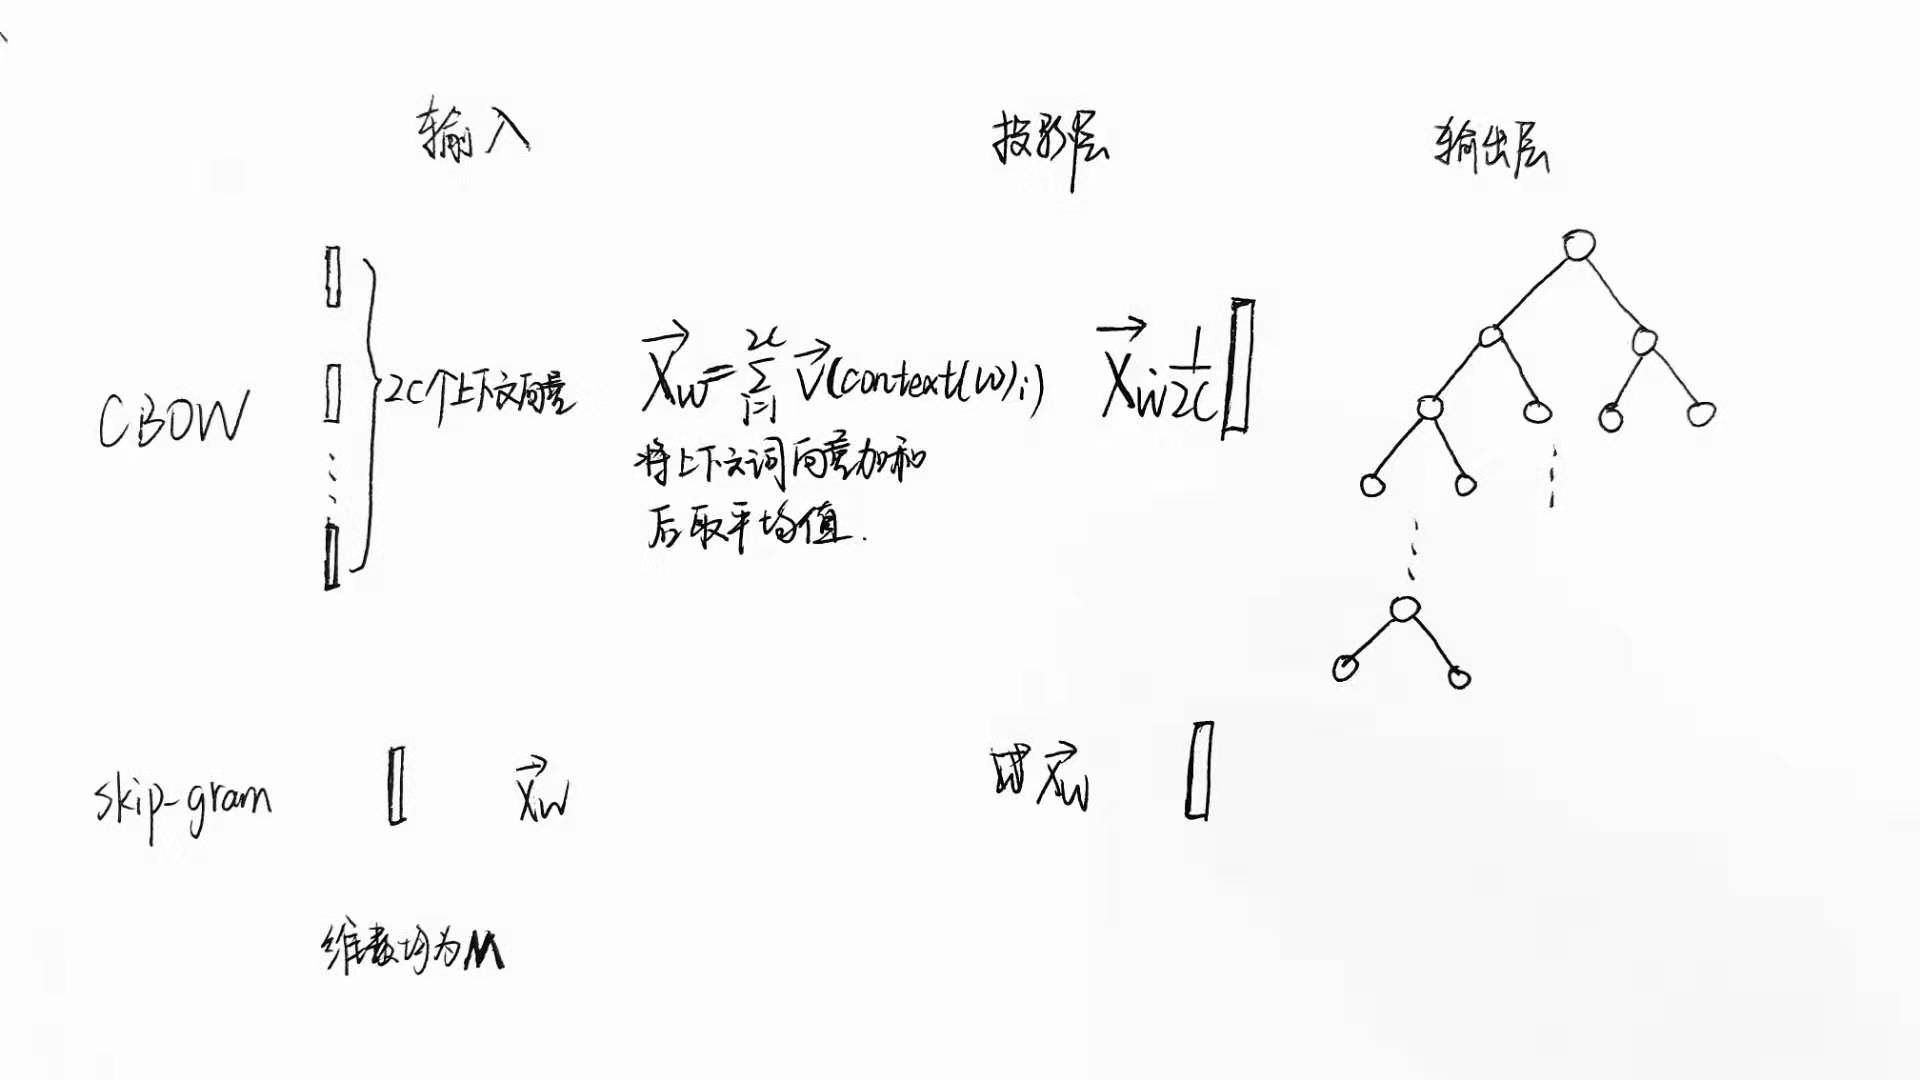 输入 投影层 输出层
CBOW 2C个上下文向量 X⃗w = Σ_{i=1}^{2C} V⃗(context(w)i) X⃗w·1/2C
将上下文词向量加和
后取平均值.
skip-gram X⃗w X⃗w
维数均为M